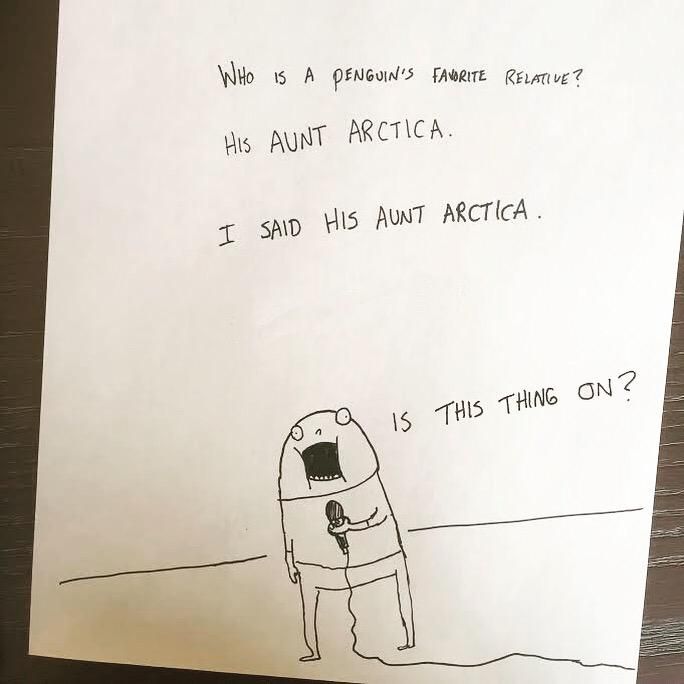 WHO IS A PENGUIN'S FAVORITE RELATIVE?
HIS AUNT ARCTICA.
I SAID HIS AUNT ARCTICA.
IS THIS THING ON?